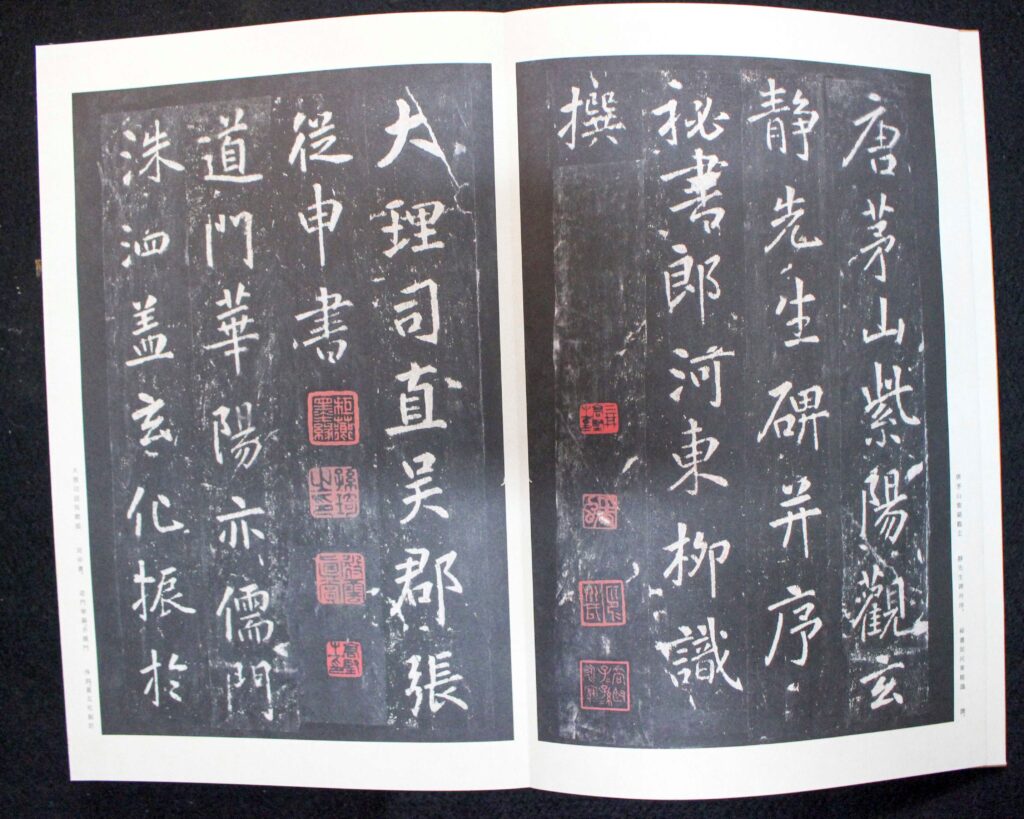 唐茅山紫陽觀玄
静先生碑并序
祕書郎河東柳識
撰
大理司直吴郡張
從申書
道門華陽亦儒門
洙泗盖玄化振於